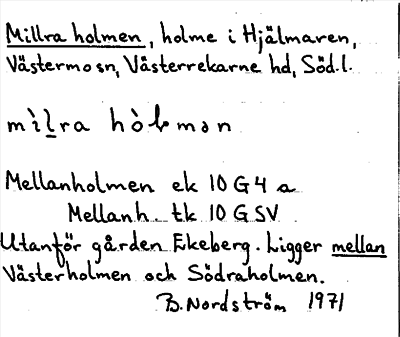 Millra holmen, holme i Hjälmaren,
Västermo sn, Västerrekarne hd, Söd.l.
mìl̠ra hòlmən
Mellanholmen ek 10 G 4 a
Mellanh. tk 10 G SV
Utanför gården Ekeberg. Ligger mellan
Västerholmen och Södraholmen.
B. Nordström 1971